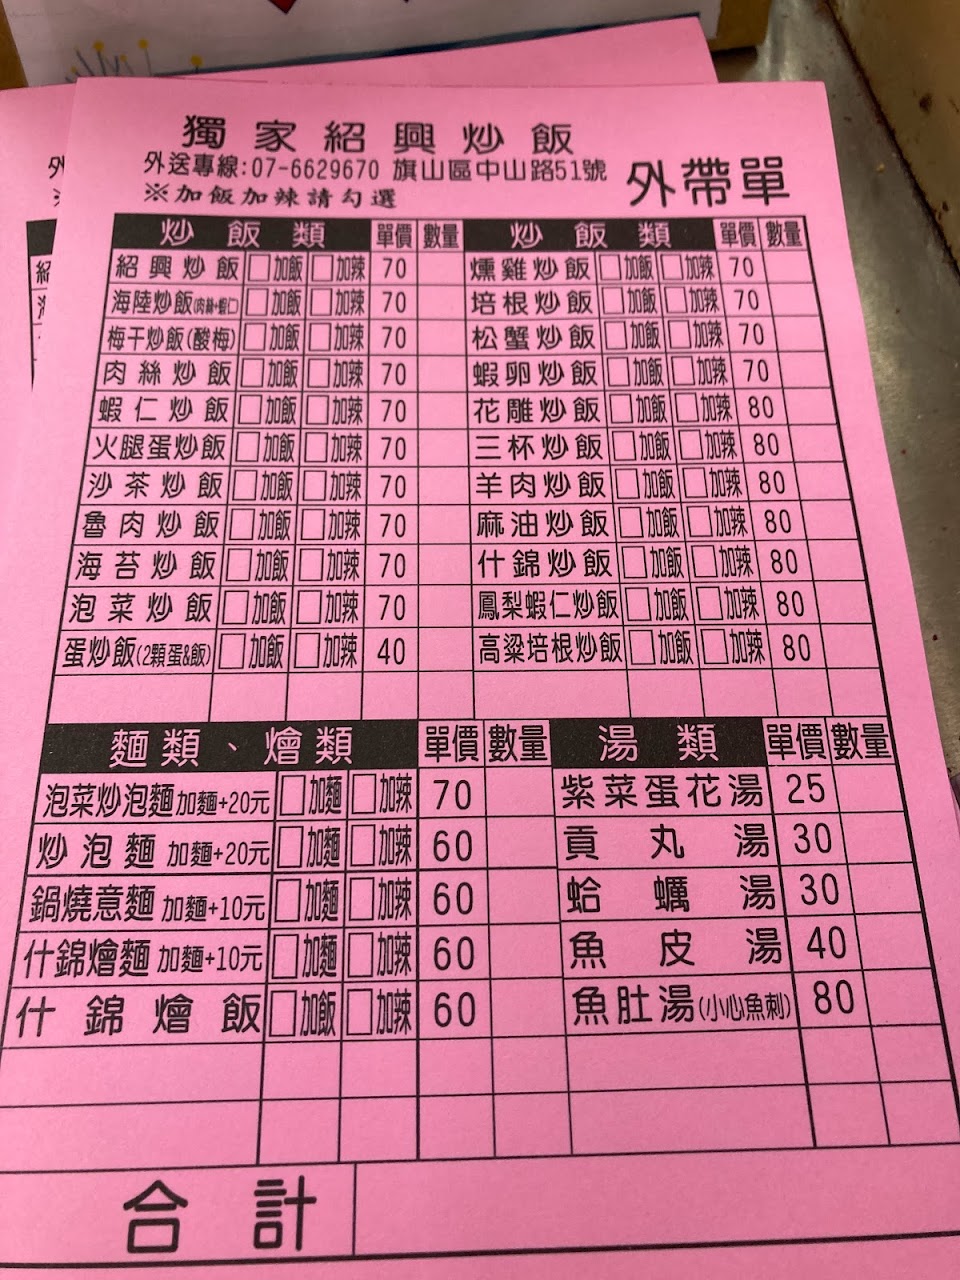 獨家紹興炒飯
外送專線:07-6629670 旗山區中山路51號
外帶單
※加飯加辣請勾選
炒飯類 單價 數量 炒飯類 單價 數量
紹興炒飯 □加飯 □加辣 70 燻雞炒飯 □加飯 □加辣 70
海陸炒飯(肉絲+蝦仁) □加飯 □加辣 70 培根炒飯 □加飯 □加辣 70
梅干炒飯(酸梅) □加飯 □加辣 70 松蟹炒飯 □加飯 □加辣 70
肉絲炒飯 □加飯 □加辣 70 蝦卵炒飯 □加飯 □加辣 70
蝦仁炒飯 □加飯 □加辣 70 花雕炒飯 □加飯 □加辣 80
火腿蛋炒飯 □加飯 □加辣 70 三杯炒飯 □加飯 □加辣 80
沙茶炒飯 □加飯 □加辣 70 羊肉炒飯 □加飯 □加辣 80
魯肉炒飯 □加飯 □加辣 70 麻油炒飯 □加飯 □加辣 80
海苔炒飯 □加飯 □加辣 70 什錦炒飯 □加飯 □加辣 80
泡菜炒飯 □加飯 □加辣 70 鳳梨蝦仁炒飯 □加飯 □加辣 80
蛋炒飯(2顆蛋&飯) □加飯 □加辣 40 高粱培根炒飯 □加飯 □加辣 80
麵類、燴類 單價 數量 湯類 單價 數量
泡菜炒泡麵 加麵+20元 □加麵 □加辣 70 紫菜蛋花湯 25
炒泡麵 加麵+20元 □加麵 □加辣 60 貢丸湯 30
鍋燒意麵 加麵+10元 □加麵 □加辣 60 蛤蠣湯 30
什錦燴麵 加麵+10元 □加麵 □加辣 60 魚皮湯 40
什錦燴飯 □加飯 □加辣 60 魚肚湯(小心魚刺) 80
合計